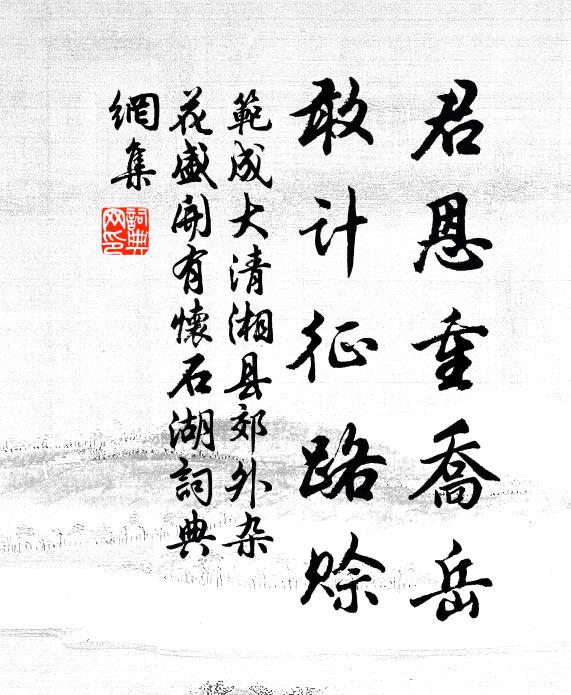 君恩重喬岳
敢计征路賒
範成大清湘县郊外杂
花盛開有懷石湖詞典
網集
詞典
网印